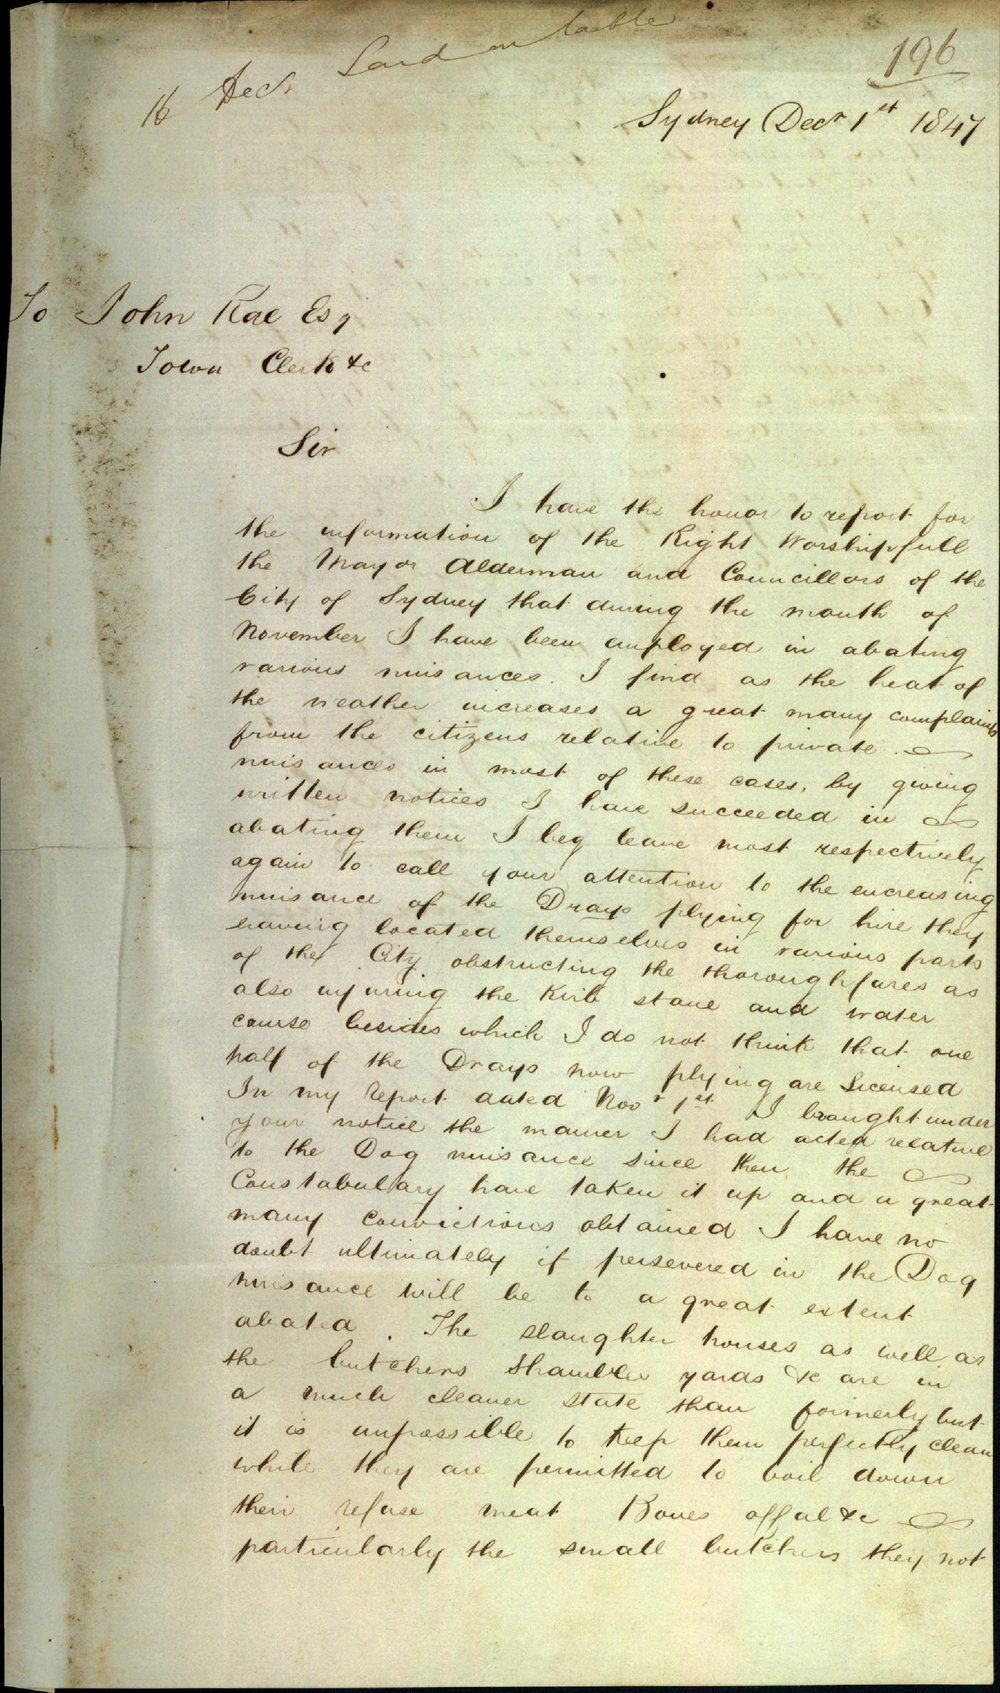 16 Decr Laid on table
196
Sydney Decr 1st 1847
To John Rae Esq
Town Clerk &c
Sir
I have the honor to report for
the information of the Right Worshipfull
the Mayor Alderman and Councillors of the
City of Sydney that during the month of
November I have been employed in abating
various nuisances. I find as the heat of
the weather increases a great many complaints
from the citizens relative to private
nuisances in most of these cases, by giving
written notices I have succeeded in
abating them I beg leave most respectively
again to call your attention to the encreasing
nuisance of the Drays plying for hire they
having located themselves in various parts
of the City obstructing the thoroughfares as
also injuring the Kirb stone and water
course besides which I do not think that one
half of the Drays now plying are Licensed
In my report dated Novr 1st I brought under
your notice the manner I had acted relative
to the Dog nuisance since then the
Constabulary have taken it up and a great
many convictions obtained I have no
doubt ultimately if persevered in the Dog
nuisance will be to a great extent
abated. The slaughter houses as well as
the butchers shambles yards &c are in
a much cleaner state than formerly but
it is impossible to keep them perfectly clean
while they are permitted to boil down
their refuse meat Bones offal &c
particularly the small butchers they not